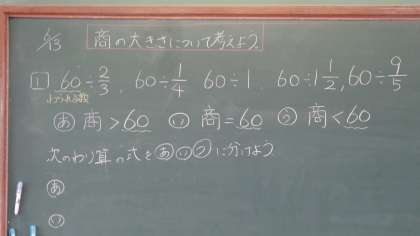 商の大きさについて考えよう
1 60÷2/3, 60÷1/4 60÷1 60÷1 1/2, 60÷9/5
わられる数
あ 商>60 い 商=60 う 商<60
次のわり算の式をあいうに分けよう
あ
い